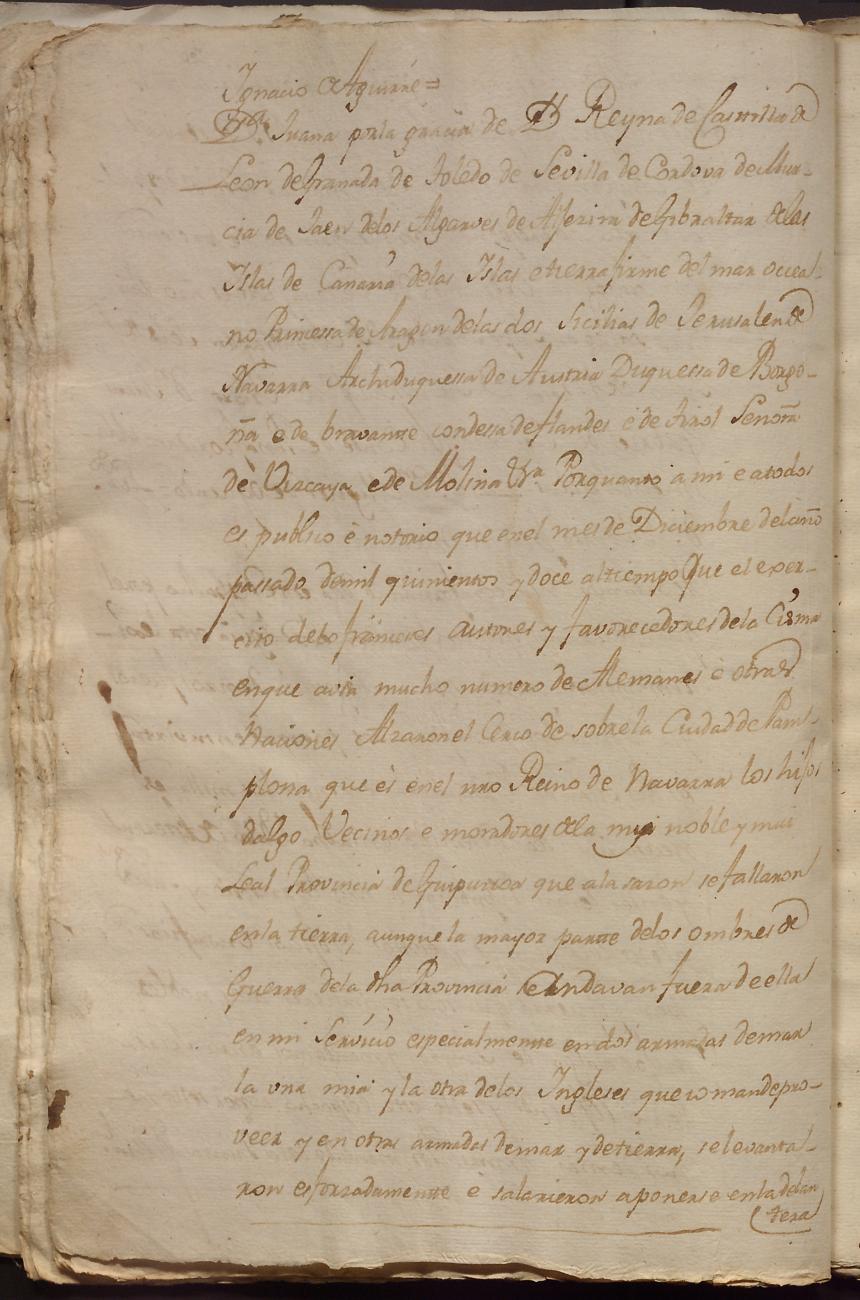 Ygnacio de Aguirre=
Dª. Juana porla gracia de D Reyna de Castilla de
Leon de Granada de Toledo de Sevilla de Cordova de Mur-
cia de Jaen delos Algarves de Aljezira de Gibraltar delas
Islas de Canaria delas Islas e tierra firme del mar occea-
no Princessa de Aragon delas dos Sicilias de Jerusalen de
Navarra Archiduquessa de Austria Duquessa de Borgo-
ña e de bravante condessa de flandes e de tirol Señora
de Vizcaya e de Molina &ra Porquanto a mi e atodos
es publico è notorio que enel mes de Diciembre del año
passado demil quinientos y doce altiempo que el exer-
cito delos franceses autores y favorecedores dela Cisma
enque avia mucho numero de Alemanes è otras
Naciones Alzaron el Cerco de sobre la Ciudad de Pam-
plona que ès enel nro Reino de Navarra los hijos
dalgo Vecinos e moradores dela muy noble y mui
Leal Provincia de Guipuzcoa que ala sazon se fallaron
enla tierra, aunque la mayor partte delos ombres de
Guerra dela dha Provincia Andavan fuera de ella
en mi Servicio especialmentte en dos armadas demar
la una mia y la otra delos Ingleses que io mande pro-
veer y en otras armadas demar y detierra, se levanta-
ron esforzadamentte e salieron aponerse enla delan
tera